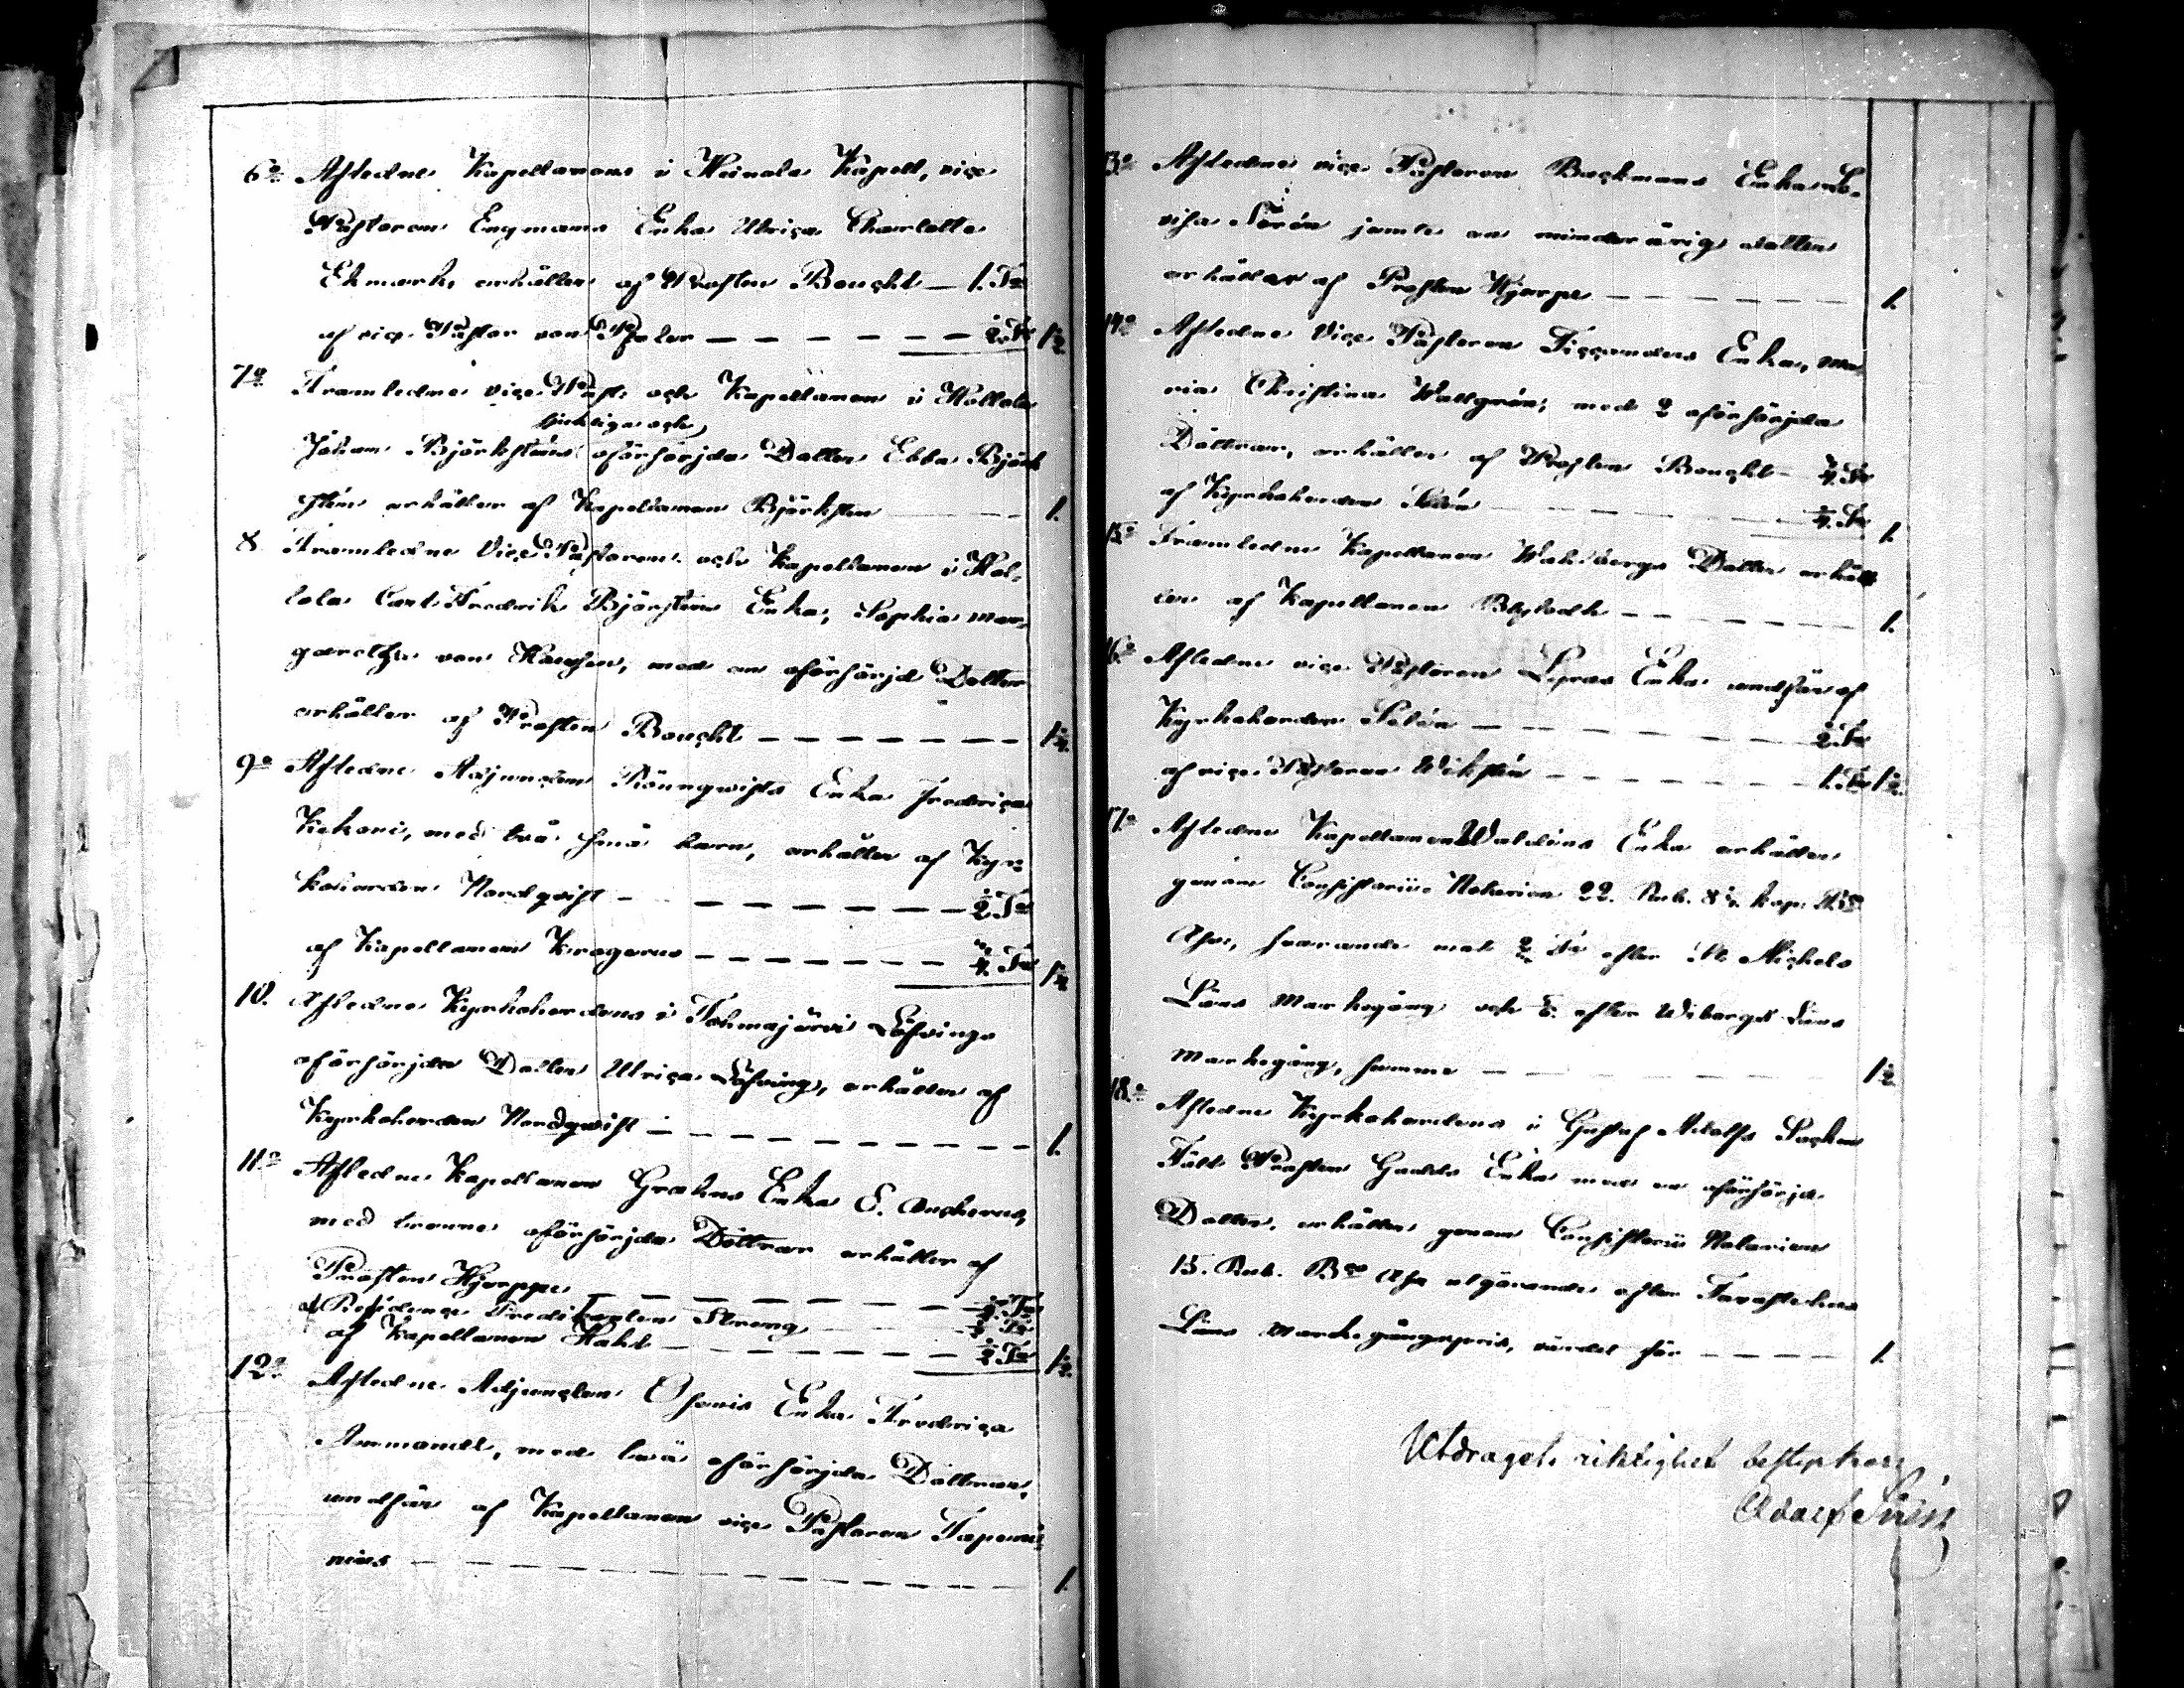 6:o Afledne Kapellanens i Heinola Kapell, vice
Pastoren Engmans Enka Ulrica Charlotta
Ekmark, erhåller af Prosten Boucht — 1. Tr
af vice Pastor von Pfaler — — — — — — ½ Tr 1½
7:o Framledne vice Past: och Kapellanen i Hollola
sjukliga och
Johan Björksténs oförsörjda Dotter Ebba Björk
stén erhåller af Kapellanen Björkstén — — — 1.
8 Framledne Vice Pastorens och Kapellanen i Hol-
lola Carl Fredrik Björksténs Enka, Sophia Mar-
garetha von Hausen, med en oförsörjd Dotter
erhåller af Prosten Boucht — — — — — — — 1¼
9:o Afledne Adjuncten Rönnqwists Enka Fredrica
Kekoni, med två små barn, erhåller af Kyr-
koherden Nordqvist — — — — — — — ½ Tr
af Kapellanen Krogerus — — — — — — — ¾ Tr 1¼
10. Afledne Kyrkoherdens i Tohmajärvi Löfvings
oförsörjda Dotter Ulrica Löfving, erhåller af
Kyrkoherden Nordqwist — — — — — — — — — 1.
11:o Afledne Kapellanen Grahns Enka E. Ancherus,
med trenne oförsörjda Döttrar erhåller af
Prosten Hjerppe — — — — — — — ¾ Tr
af Residence Predikanten Streng — — ¼ Tr
af Kapellanen Hahl — — — — — — — ½ Tr 1½
12:o Afledne Adjuncten Ofonis Enka Fredrica
Ammondt, med två oförsörjda Döttrar,
undfår af Kapellanen vice Pastoren Tapenius
nius — — — — — — — — — — — — — 1.
13:o Afledne vice Pastoren Backmans Enka Lo-
visa Norén jemte en minderårig dotter
erhåller af Prosten Hjerpe — — — — — — 1.
14:o Afledne Vice Pastoren Ticcanders Enka, Ma-
ria Christina Wallgrén, med 2 oförsörjda
Döttrar, erhåller af Prosten Boucht — ¾ Tr
af Kyrkoherden Selén — — — — ¼ Tr 1.
15:o Framledne Kapellanen Wahlbergs Dotter erhål-
ler af Kapellanen Blystedt — — — — — 1.
16:o Afledne vice Pastoren Lyras Enka undfår af
Kyrkoherden Selén — — — — — — ½ Tr
af vice Pastoren Wikstén — — — — — 1. Tr 1½
17:o Afledne Kapellanen Waldéns Enka erhåller
genom Consistorii Notarien 22. Rub. 8½ kop. B:co
Ass, svarande mot Tr efter St Michels
Läns Markegång och efter Wiborgs Läns
Markegång, summa — — — — — — 1½
18:o Afledne Kyrkoherdens i Gustaf Adolfs Socken
Fält Prosten Gadds Enka med en oförsörjd
Dotter, erhåller genom Consistorii Notarien
15. Rub. B:co Ass utgörande efter Tavastehus
Läns Markegångspris, värdet för — — — — 1.
Utdragets riktighet bestyrker
Adolf Sirén